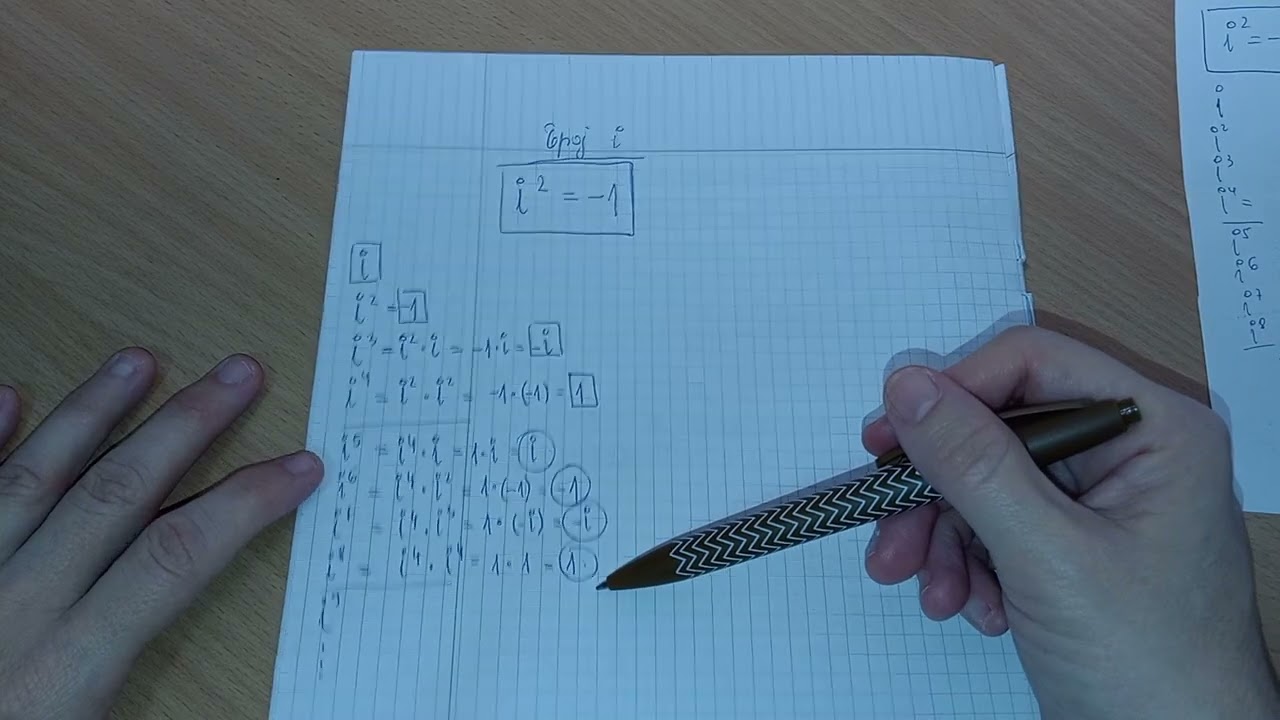 Број i
i² = -1
i
i² = -1
i³ = i² · i = -1 · i = -i
i⁴ = i² · i² = -1 · (-1) = 1
i⁵ = i⁴ · i = 1 · i = i
i⁶ = i⁴ · i² = 1 · (-1) = -1
i⁷ = i⁴ · i³ = 1 · (-i) = -i
i⁸ = i⁴ · i⁴ = 1 · 1 = 1
i⁹
i² = -
i
i²
i³
i⁴ =
i⁵
i⁶
i⁷
i⁸